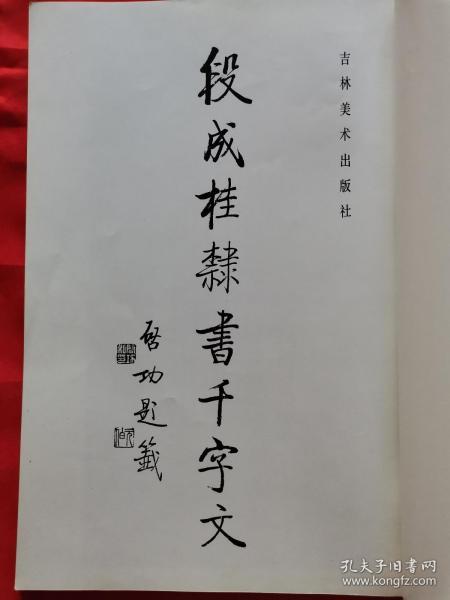 吉林美术出版社
段成桂隸書千字文
啓功題籤
孔夫子旧书网
www.kongfz.com